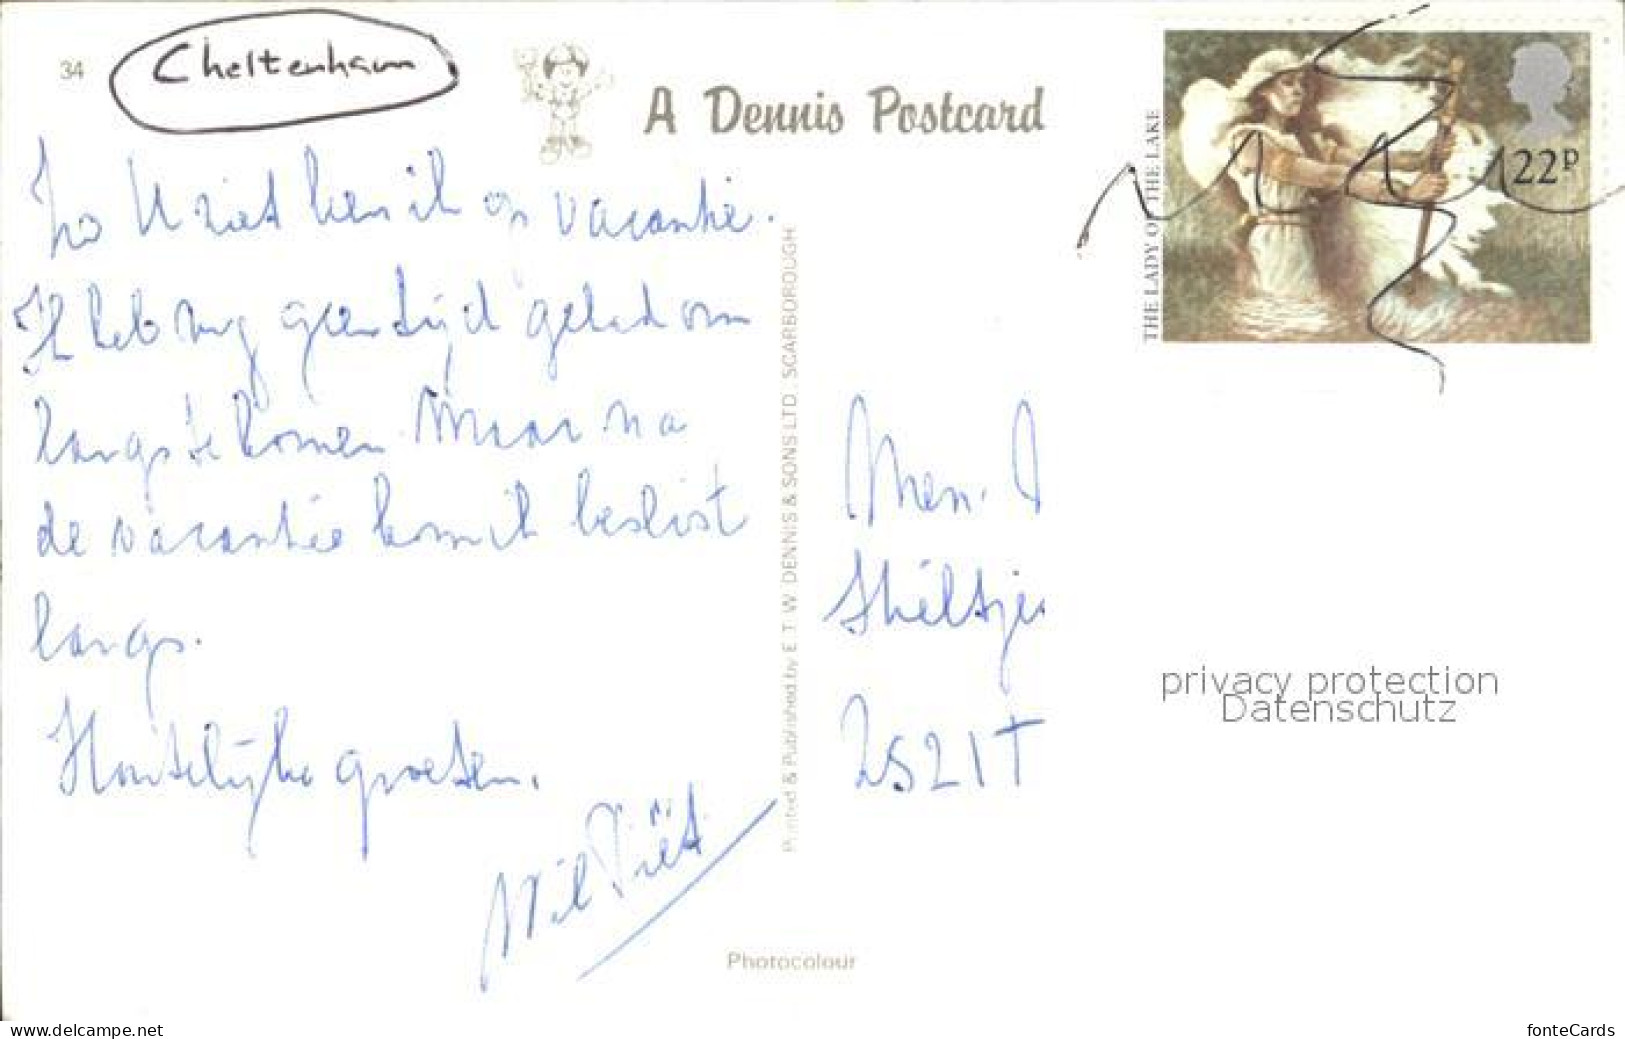 34
Cheltenham
A Dennis Postcard
THE LADY OF THE LAKE
22P
Zo U ziet ben ik op vacantie.
Ik heb nog geen tijd gehad om
langs te komen. Maar na
de vacantie kom ik beslist
langs.
Hartelijke groeten.
Wil Piët
Printed & Published by E. T. W. DENNIS & SONS LTD., SCARBOROUGH
Photocolour
2521T
privacy protection
Datenschutz
www.delcampe.net
fonteCards